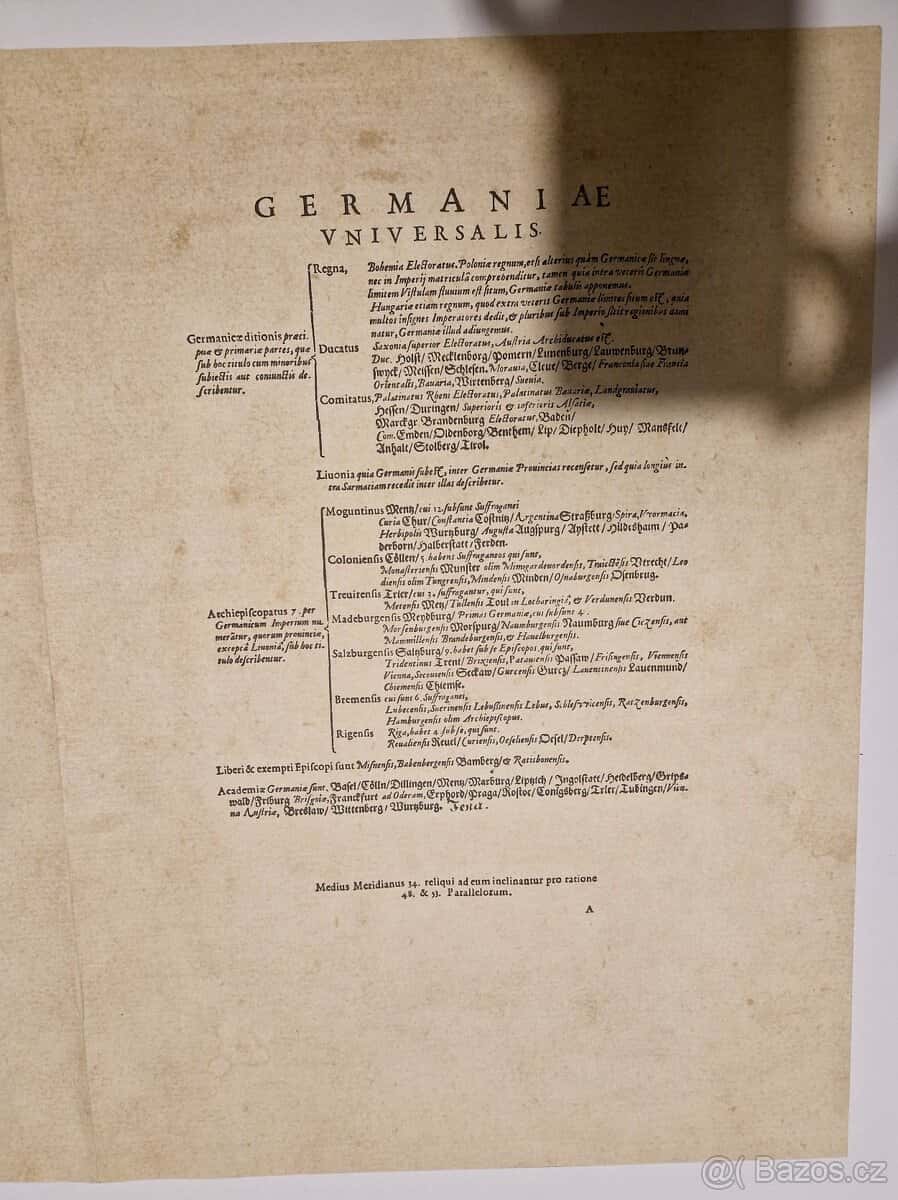 GERMANIAE
VNIVERSALIS.
Germanicæ ditionis præci
puæ & primariæ partes, quæ
sub hoc titulo cum minoribus
subiectis aut coniunctis de-
scribentur.
Regna,
Bohemia Electoratus. Poloniæ regnum, etsi alterius quàm Germanicæ sit linguæ,
nec in Imperij matriculâ comprehenditur, tamen quia intra veteris Germaniæ
limitem Vistulam fluuium est situm, Germaniæ tabulis apponemus.
Hungariæ etiam regnum, quod extra veteris Germaniæ limites situm est, quia
multos insignes Imperatores dedit, & pluribus sub Imperio sitis regionibus domi
natur, Germaniæ illud adiungemus.
Ducatus
Saxonia superior Electoratus, Austria Archiducatus est.
Duc. Holst/ Mecklenborg/ Pomern/ Lunenburg/ Lauwenburg/ Brun-
swyck/ Meissen/ Schlesen. Morauia, Cleue/ Berge/ Franconia siue Francia
Orientalis, Bauaria, Wirtenberg/ Sueuia.
Comitatus, Palatinatus Rheni Electoratus, Palatinatus Bauariæ, Landgrauiatus,
Hessen/ Duringen/ Superioris & inferioris Alsatiæ,
Marckgr. Brandenburg Electoratus, Baden/
Com. Emden/ Oldenborg/ Benthem/ Lip/ Diepholt/ Huy/ Mansfelt/
Anhalt/ Stolberg/ Tirol.
Liuonia quia Germanis subest, inter Germaniæ Prouincias recensetur, sed quia longiùs in-
tra Sarmatiam recedit inter illas describetur.
Archiepiscopatus 7. per
Germanicum Imperium nu-
merãtur, quorum prouinciæ,
exceptâ Liuoniâ, sub hoc ti-
tulo describentur.
Moguntinus Mentz/ cui 12. subsunt Suffraganei
Curia Chur/ Constantia Costnitz/ Argentina Straßburg/ Spira, Vvormacia,
Herbipolis Wurtzburg/ Augusta Augspurg/ Aystett/ Hildeshaim/ Pa-
derborn/ Halberstatt/ Ferden.
Coloniensis Cöllen/ 5. habens Suffraganeos qui sunt,
Monasteriensis Munster olim Mimigardeuordensis, Traiectẽsis Vtrecht/ Leo
diensis olim Tungrensis, Mindensis Minden/ Osnaburgensis Osenbrug.
Treuirensis Trier/ cui 3. suffragantur, qui sunt,
Metensis Metz/ Tullensis Toul in Lotharingia, & Verdunensis Verdun.
Madeburgensis Meydburg/ Primas Germaniæ, cui subsunt 4.
Morsenburgensis Morspurg/ Naumburgensis Naumburg siue Ciczensis, aut
Mammillensis Brandeburgensis, & Hauelburgensis.
Salzburgensis Saltzburg/ 9. habet sub se Episcopos qui sunt,
Tridentinus Trent/ Brixiensis, Patauiensis Passaw/ Frisingensis, Viennensis
Vienna, Secouiensis Seckaw/ Gurcensis Gurcz/ Lauentinensis Lauenmund/
Chiemensis Chiemse.
Bremensis cui sunt 6. Suffraganei,
Lubecensis, Suerinensis Lebussinensis Lebus, Schlesvvicensis, Ratzenburgensis,
Hamburgensis olim Archiepiscopus.
Rigensis Riga, habet 4. sub se, qui sunt.
Reualiensis Reuel/ Curiensis, Oeseliensis Oesel/ Derptensis.
Liberi & exempti Episcopi sunt Misnensis, Babenbergensis Bamberg/ & Ratisbonensis.
Academiæ Germaniæ sunt. Basel/ Cölln/ Dillingen/ Mentz/ Marburg/ Liptzich/ Ingolstatt/ Heidelberg/ Grips-
wald/ Friburg Brisgoiæ, Franckfurt ad Oderam, Erphord/ Praga/ Rostoc/ Conigsberg/ Trier/ Tubingen/ Vien-
na Austriæ, Breslaw/ Wittenberg/ Wurtzburg.
Medius Meridianus 34. reliqui ad eum inclinantur pro ratione
48. & 53. Parallelorum.
A
@( Bazos.cz